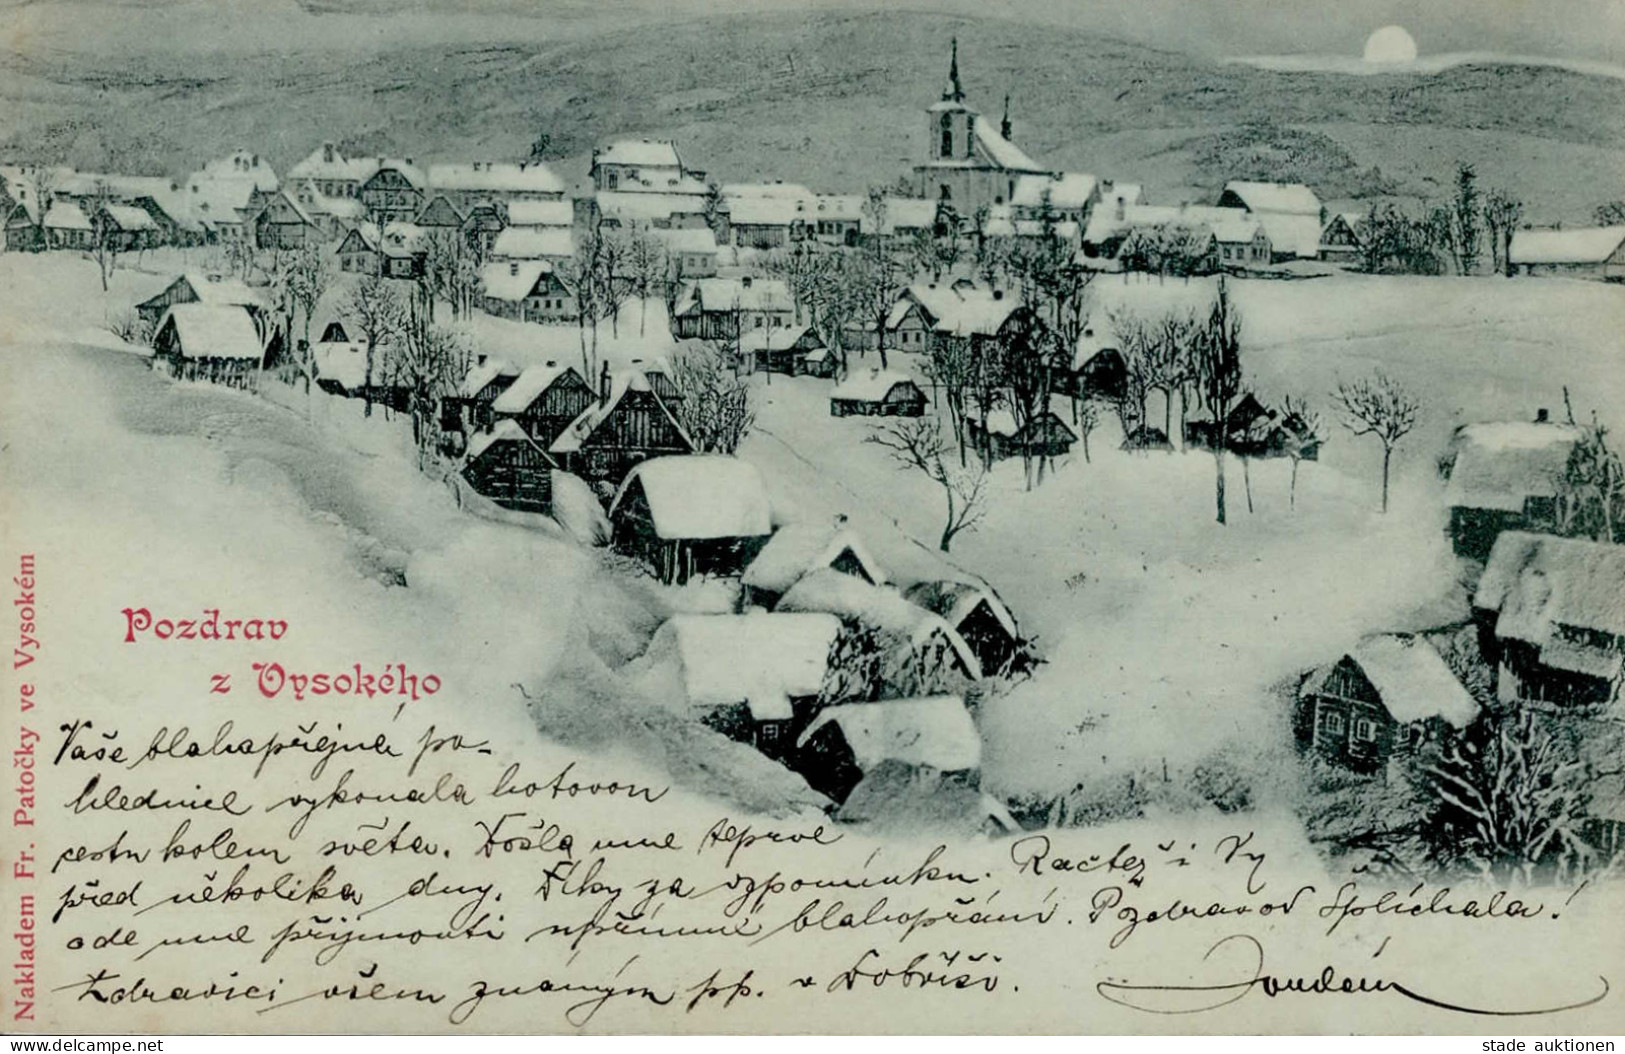 Pozdrav
z Vysokého
Nakladem Fr. Patočky ve Vysokém
Vaše blahapřejná po-
hlednice vykonala hotovou
cestu kolem světa. Došla mne teprve
před několika dny. Díky za vzpomínku. Račtež i Vy
ode mne přijmouti upřímné blahopřání. Pozdrav od Šplíchala!
Zdravici všem známým pp. v Dobříši.
delcampe.net
stade auktionen